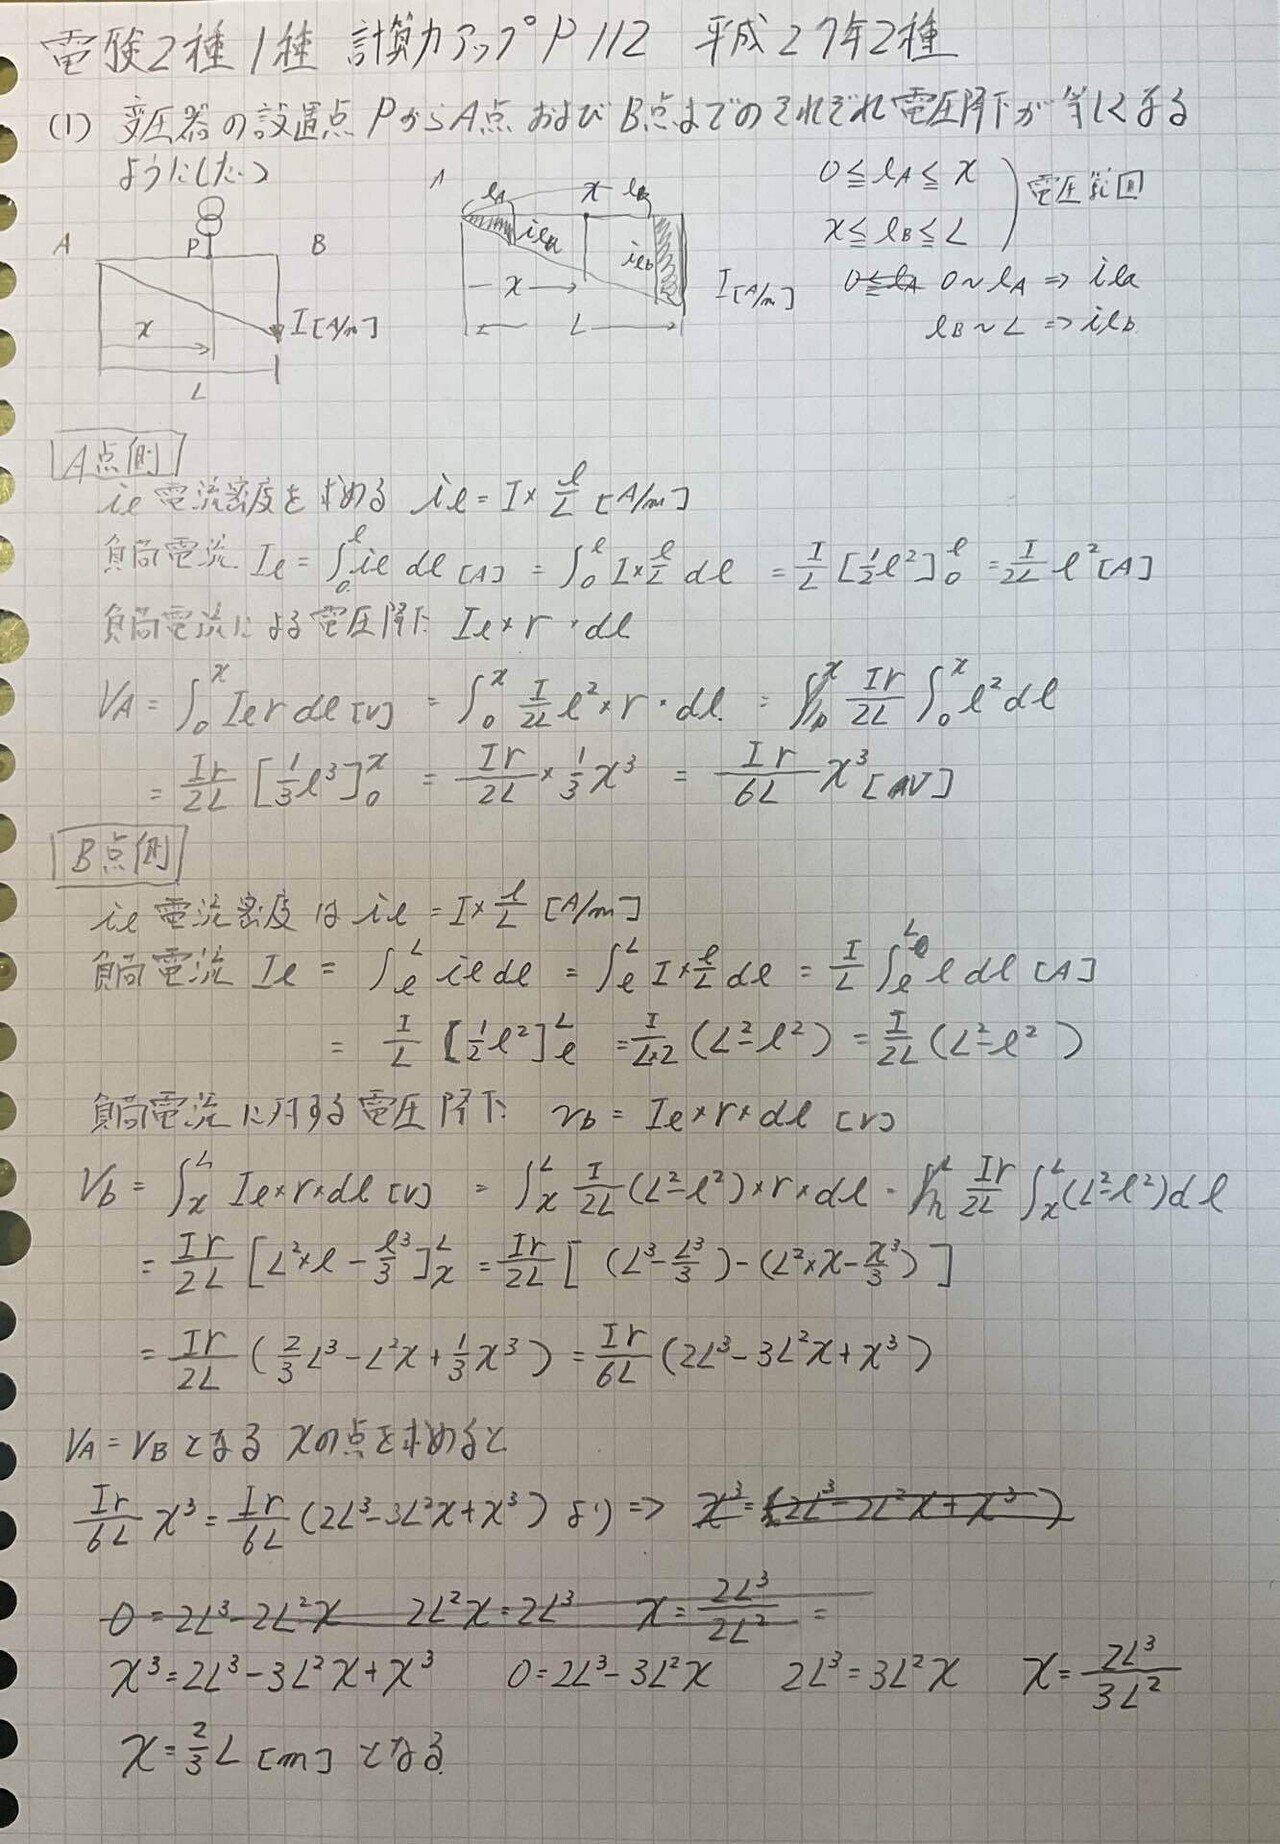 電験2種1種 計算力アップP112 平成27年2種
(1) 変圧器の設置点PからA点およびB点までのそれぞれ電圧降下が等しくなる
ようにしたい
A P B
I[A/m]
x
L
lA x lB
ila
ilb
x
L
I[A/m]
0≦lA≦x
x≦lB≦L
電圧範囲
0≦lA 0~lA ⇒ ila
lB~L ⇒ ilb
A点側
il 電流密度を求める il = I×l/L [A/m]
負荷電流 Il = ∫₀^l il dl [A] = ∫₀^l I×l/L dl = I/L [1/2 l²]₀^l = I/2L l² [A]
負荷電流による電圧降下 Il×r・dl
VA = ∫₀^x Il r dl [V] = ∫₀^x I/2L l²×r・dl = Ir/2L ∫₀^x l² dl
= Ir/2L [1/3 l³]₀^x = Ir/2L × 1/3 x³ = Ir/6L x³ [V]
B点側
il 電流密度は il = I×l/L [A/m]
負荷電流 Il = ∫_l^L il dl = ∫_l^L I×l/L dl = I/L ∫_l^L l dl [A]
= I/L [1/2 l²]_l^L = I/L×2 (L²-l²) = I/2L (L²-l²)
負荷電流に対する電圧降下 vb = Il×r×dl [V]
Vb = ∫_x^L Il×r×dl [V] = ∫_x^L I/2L (L²-l²)×r×dl = Ir/2L ∫_x^L (L²-l²)dl
= Ir/2L [L²×l - l³/3]_x^L = Ir/2L [ (L³-L³/3)-(L²×x-x³/3) ]
= Ir/2L (2/3 L³-L²x+1/3 x³) = Ir/6L (2L³-3L²x+x³)
VA=VBとなる xの点を求めると
Ir/6L x³ = Ir/6L (2L³-3L²x+x³) より ⇒ x³=(2L³-2L²x+x³)
0=2L³-2L²x 2L²x=2L³ x=2L³/2L² =
x³=2L³-3L²x+x³ 0=2L³-3L²x 2L³=3L²x x=2L³/3L²
x=2/3 L [m] となる